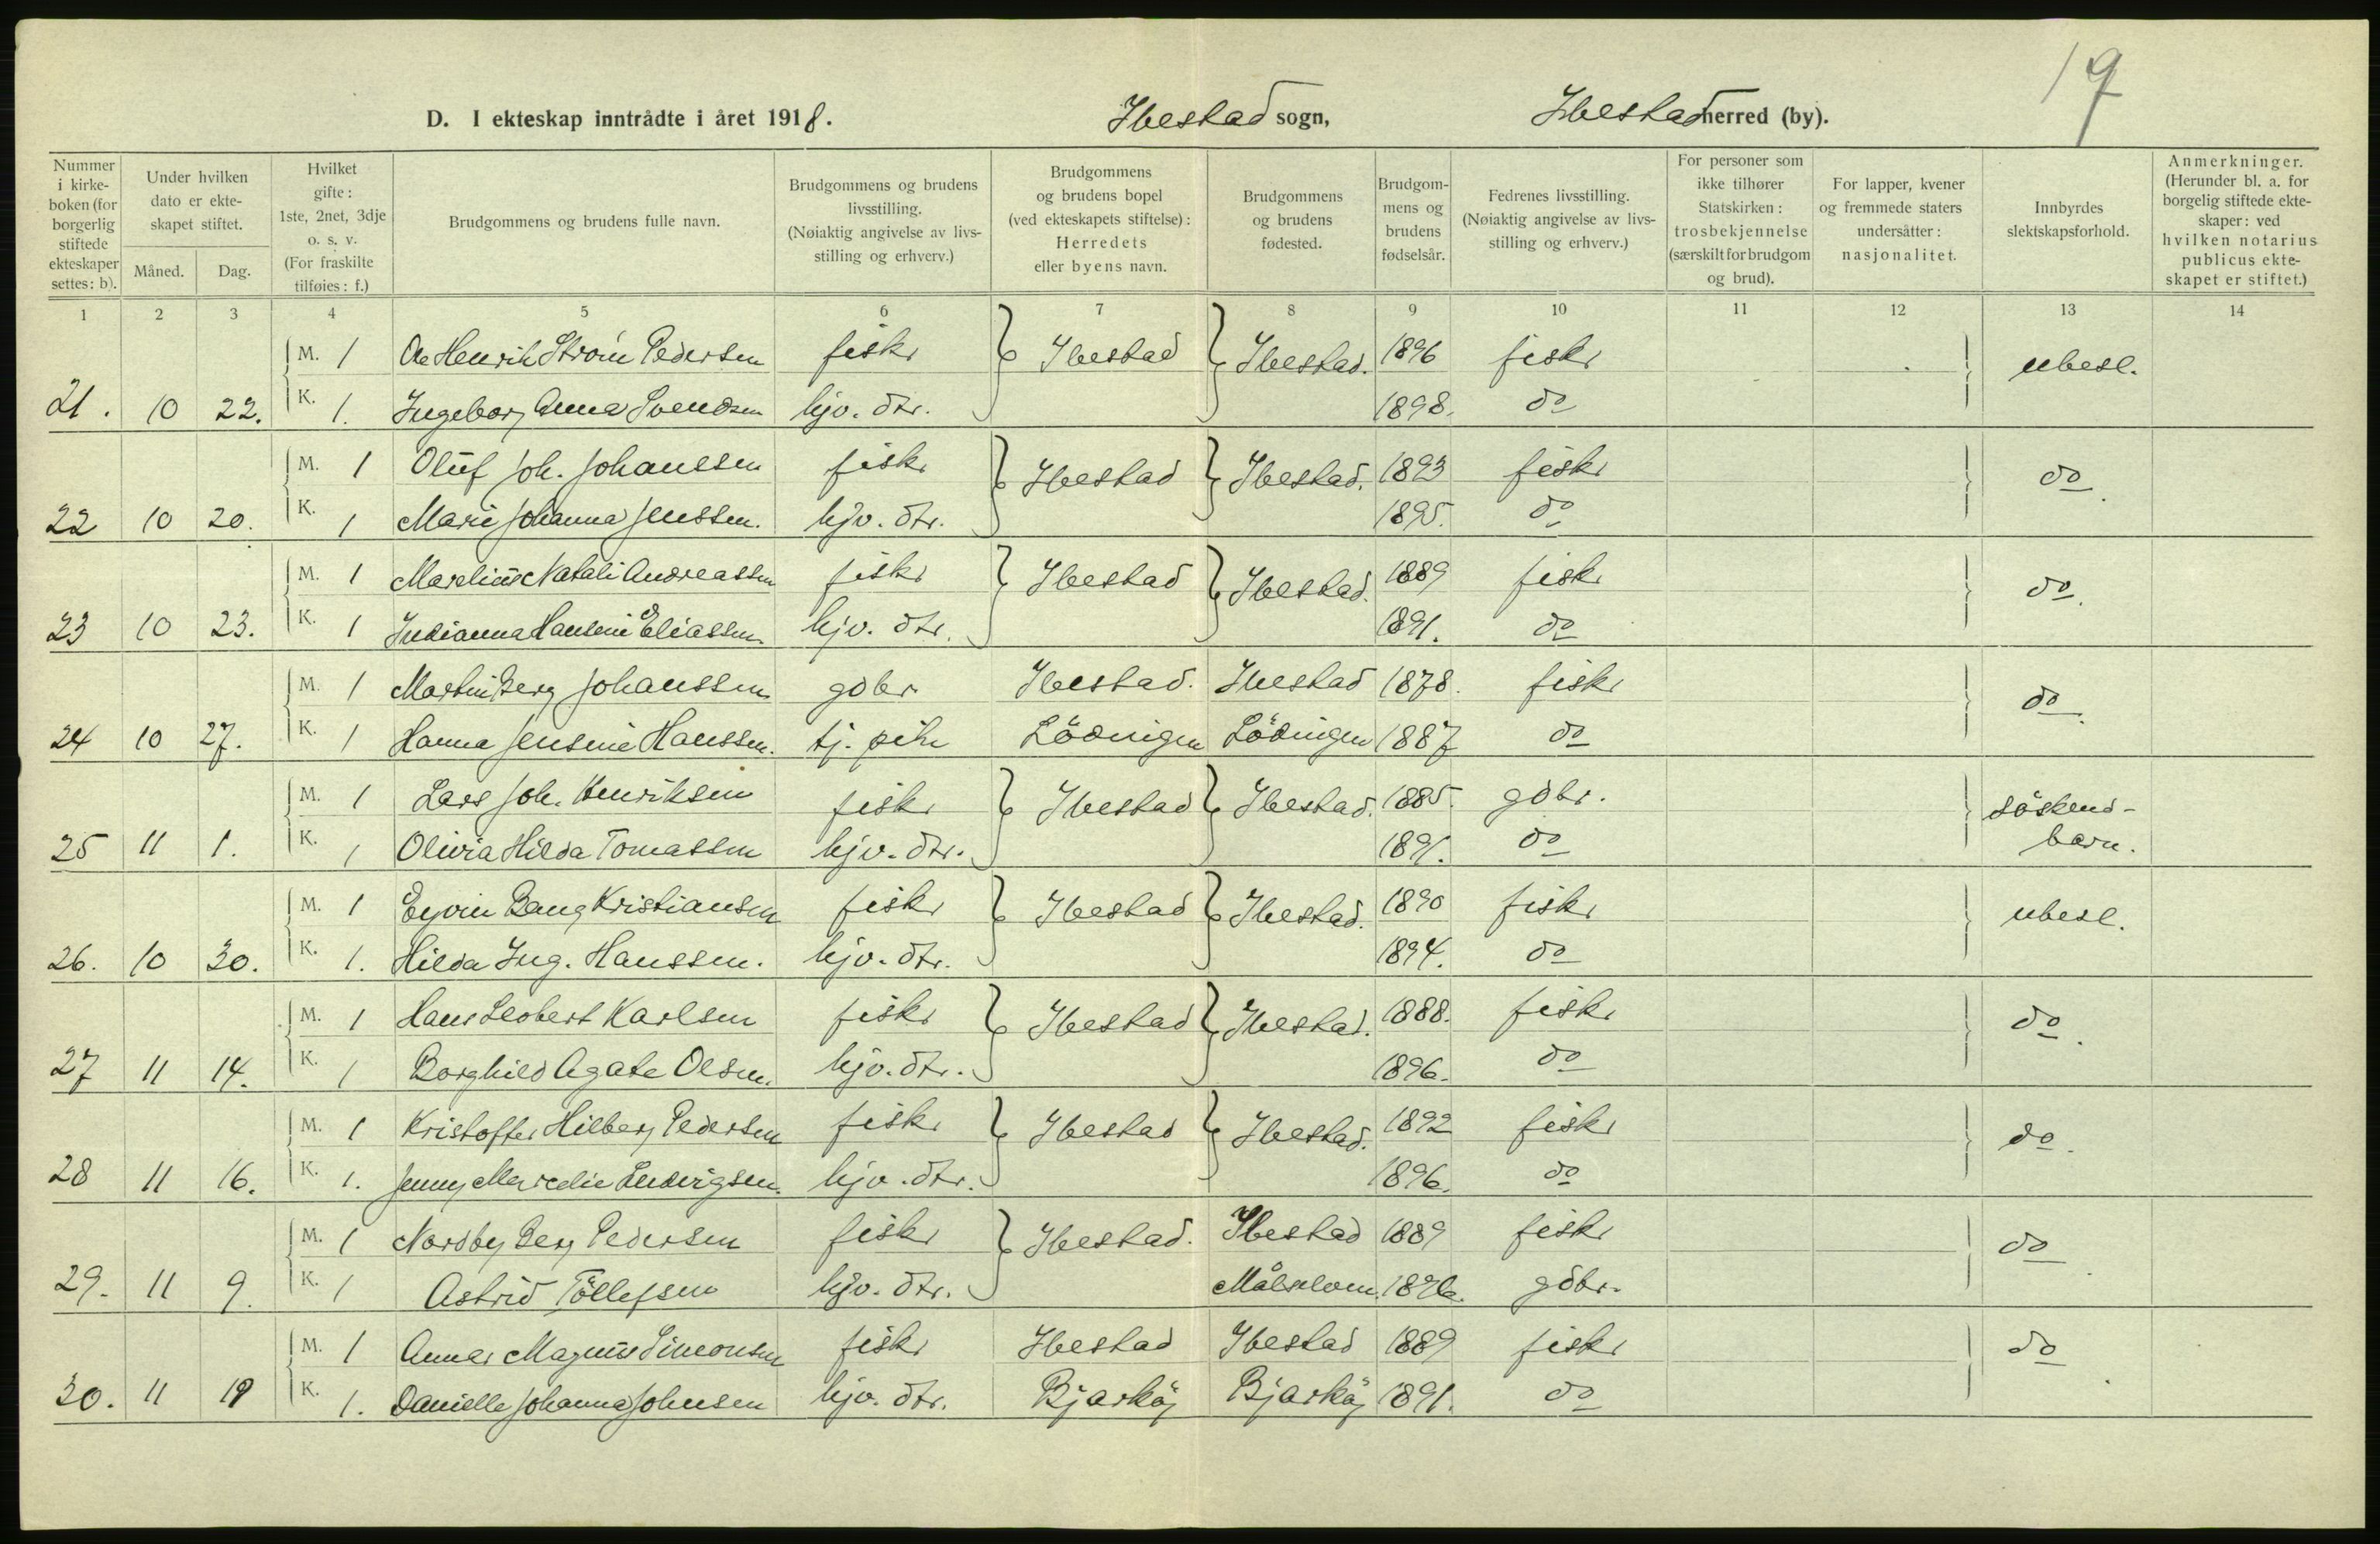 19
D. I ekteskap inntrådte i året 1918. Ibestad sogn, Ibestad herred (by).
Nummer i kirkeboken (for borgerlig stiftede ekteskaper settes: b).
Under hvilken dato er ekteskapet stiftet.
Måned.
Dag.
Hvilket gifte: 1ste, 2net, 3dje o. s. v. (For fraskilte tilføies: f.)
Brudgommens og brudens fulle navn.
Brudgommens og brudens livsstilling. (Nøiaktig angivelse av livsstilling og erhverv.)
Brudgommens og brudens bopel (ved ekteskapets stiftelse): Herredets eller byens navn.
Brudgommens og brudens fødested.
Brudgommens og brudens fødselsår.
Fedrenes livsstilling. (Nøiaktig angivelse av livsstilling og erhverv.)
For personer som ikke tilhører Statskirken: trosbekjennelse (særskilt for brudgom og brud).
For lapper, kvener og fremmede staters undersåtter: nasjonalitet.
Innbyrdes slektskapsforhold.
Anmerkninger. (Herunder bl. a. for borgelig stiftede ekteskaper: ved hvilken notarius publicus ekteskapet er stiftet.)
1 2 3 4 5 6 7 8 9 10 11 12 13 14
M. 1 Henrik Strøm Pedersen fisk. Ibestad Ibestad. 1896 fisk. ubesl.
21. 10 22. K. 1. Ingeborg Anna Svendsen hjv. dtr. 1898. do
M. 1 Oluf Joh. Johanssen fisk. Ibestad Ibestad. 1893 fisk. do.
22 10 20. K. 1 Marie Johanna Jenssen. hjv. dtr. 1895. do
M. 1 Marelius Natali Andreassen fisk. Ibestad Ibestad. 1889 fisk. do.
23 10 23. K. 1 Indianna Hansine Eliassen hjv. dtr. 1891. do
M. 1 Martin Berg Johanssen gdbr. Ibestad. Ibestad 1878. fisk. do.
24 10 27. K. 1 Hanna Jensine Hanssen. tj. pike Lödingen Lödingen 1887 do
M. 1 Lars Joh. Henriksen fisk. Ibestad Ibestad. 1885. gdbr. söskend-
25 11 1. K. 1 Olivia Hilda Tomassen hjv. dtr. 1891. do barn.
M. 1 Eyvin Bang Kristiansen fisk. Ibestad Ibestad. 1890 fisk. ubesl.
26. 10 30. K. 1. Hilda Ing. Hanssen. hjv. dtr. 1894. do
M. 1 Hans Leobert Karlsen fisk. Ibestad Ibestad. 1888. fisk. do.
27 11 14. K. 1 Borghild Agate Olsen. hjv. dtr. 1896. do
M. 1 Kristoffer Hilberg Pedersen fisk. Ibestad Ibestad. 1892 fisk. do.
28 11 16. K. 1. Jenny Ludvigsen. hjv. dtr. 1896. do
M. 1 Nordby Berg Pedersen fisk. Ibestad. Ibestad 1889 fisk. do.
29. 11 9. K. 1 Astrid Töllefsen hjv. dtr. Målselven. 1896. gdbr.
M. 1 Magnus Simonsen fisk. Ibestad Ibestad 1889 fisk. do.
30. 11 19 K. 1. Danielle Johanna Johnsen hjv. dtr. Bjarköj Bjarköj 1891. do